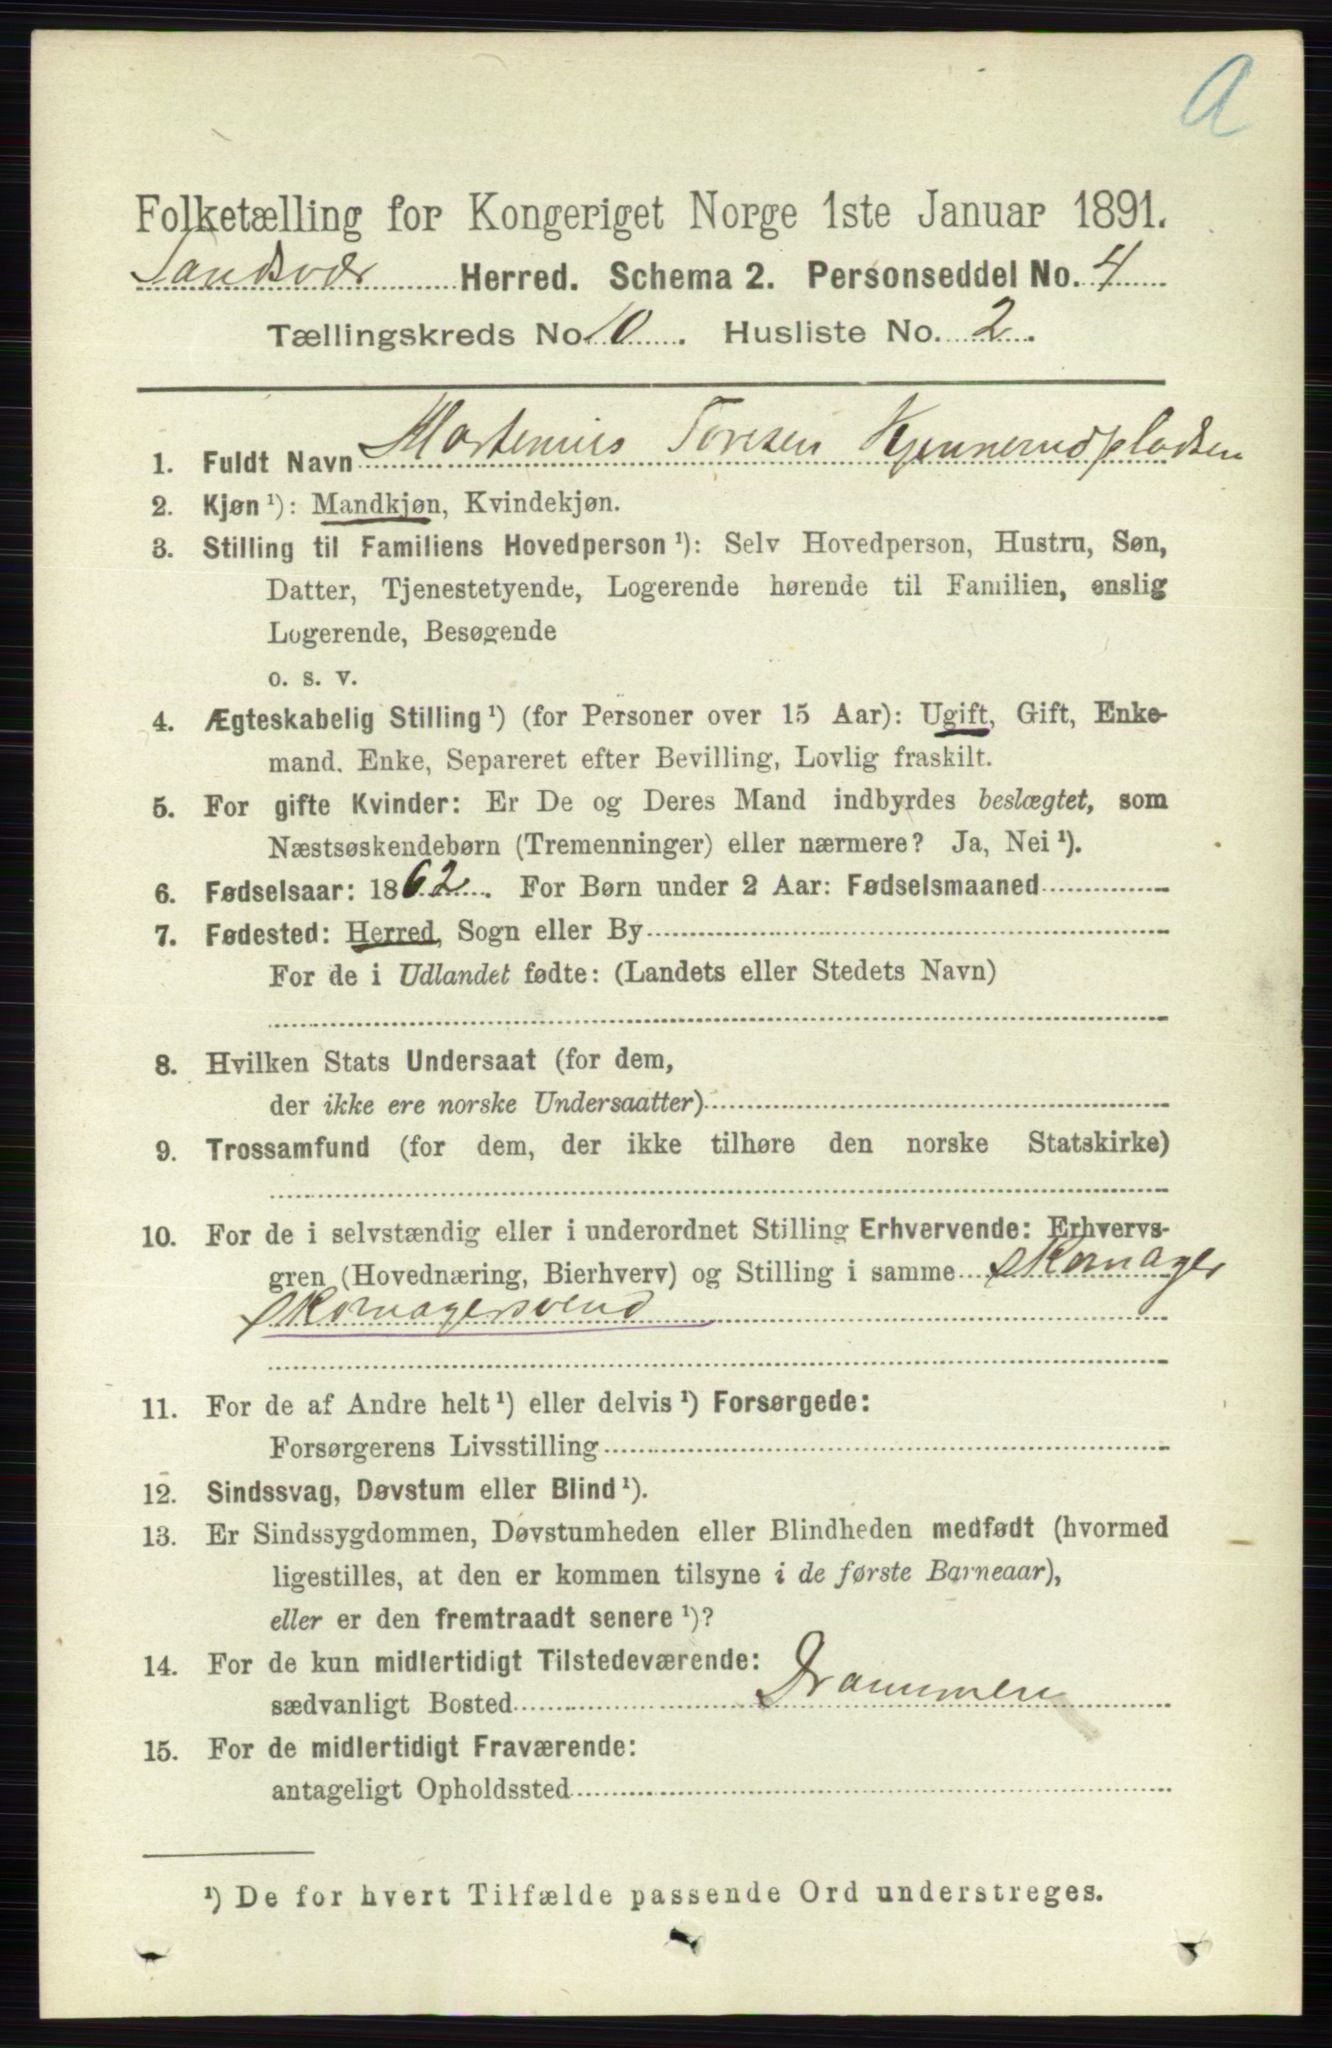 A
Folketælling for Kongeriget Norge 1ste Januar 1891.
Sandsvær Herred. Schema 2. Personseddel No. 4
Tællingskreds No. 10. Husliste No. 2.
1. Fuldt Navn Martenius Toresen Kjennerudpladsen
2. Kjøn ¹): Mandkjøn, Kvindekjøn.
3. Stilling til Familiens Hovedperson ¹): Selv Hovedperson, Hustru, Søn,
Datter, Tjenestetyende, Logerende hørende til Familien, enslig
Logerende, Besøgende
o. s. v.
4. Ægteskabelig Stilling ¹) (for Personer over 15 Aar): Ugift, Gift, Enke-
mand, Enke, Separeret efter Bevilling, Lovlig fraskilt.
5. For gifte Kvinder: Er De og Deres Mand indbyrdes beslægtet, som
Næstsøskendebørn (Tremenninger) eller nærmere? Ja, Nei ¹).
6. Fødselsaar: 1862. For Børn under 2 Aar: Fødselsmaaned
7. Fødested: Herred, Sogn eller By
For de i Udlandet fødte: (Landets eller Stedets Navn)
8. Hvilken Stats Undersaat (for dem,
der ikke ere norske Undersaatter)
9. Trossamfund (for dem, der ikke tilhøre den norske Statskirke)
10. For de i selvstændig eller i underordnet Stilling Erhvervende: Erhvervs-
gren (Hovednæring, Bierhverv) og Stilling i samme skomager
skomagersvend
11. For de af Andre helt ¹) eller delvis ¹) Forsørgede:
Forsørgerens Livsstilling
12. Sindssvag, Døvstum eller Blind ¹).
13. Er Sindssygdommen, Døvstumheden eller Blindheden medfødt (hvormed
ligestilles, at den er kommen tilsyne i de første Barneaar),
eller er den fremtraadt senere ¹)?
14. For de kun midlertidigt Tilstedeværende:
sædvanligt Bosted Drammen
15. For de midlertidigt Fraværende:
antageligt Opholdssted
¹) De for hvert Tilfælde passende Ord understreges.